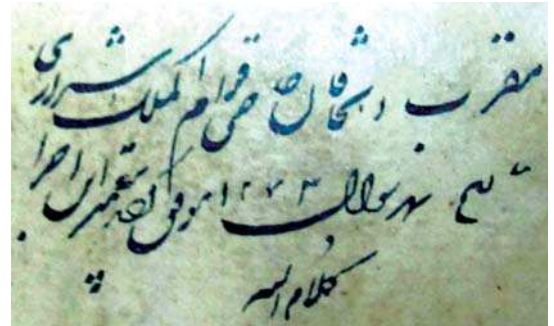 مقرب الخاقان حاجی قوام الملک شیرازی
بتاریخ شهر شوال ۱۲۷۳ موفق بتعمیر این اجزا
کلام الله